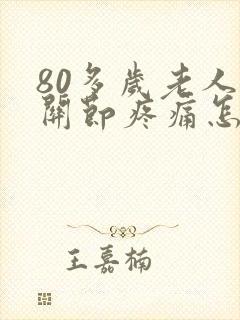 80多歲老人
關節疼痛怎
王嘉楠